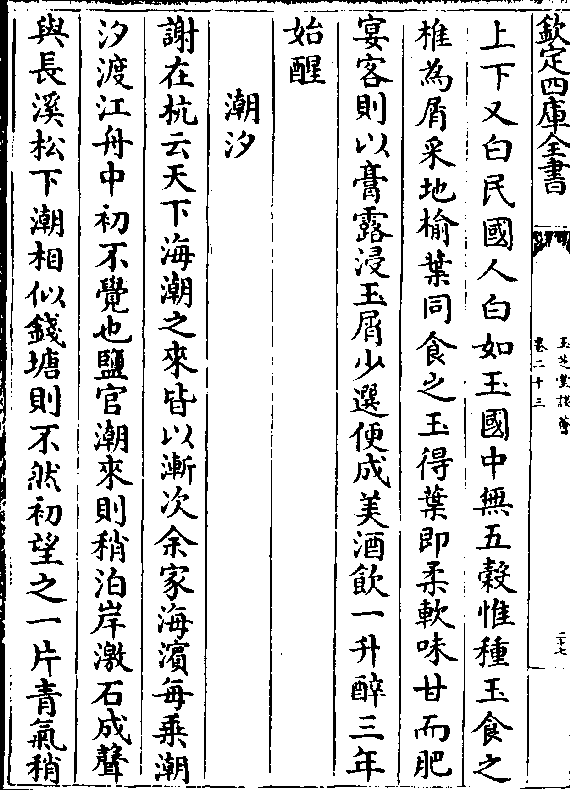 欽定四庫全書
玉芝堂談薈
卷二十三
二十七
上下又白民國人白如玉國中無五穀惟種玉食之
椎為屑采地榆葉同食之玉得葉即柔軟味甘而肥
宴客則以膏露浸玉屑少選便成美酒飲一升醉三年
始醒
潮汐
謝在杭云天下海潮之來皆以漸次余家海濱每乘潮
汐渡江舟中初不覺也鹽官潮來則稍泊岸激石成聲
與長溪松下潮相似錢塘則不然初望之一片青氣稍